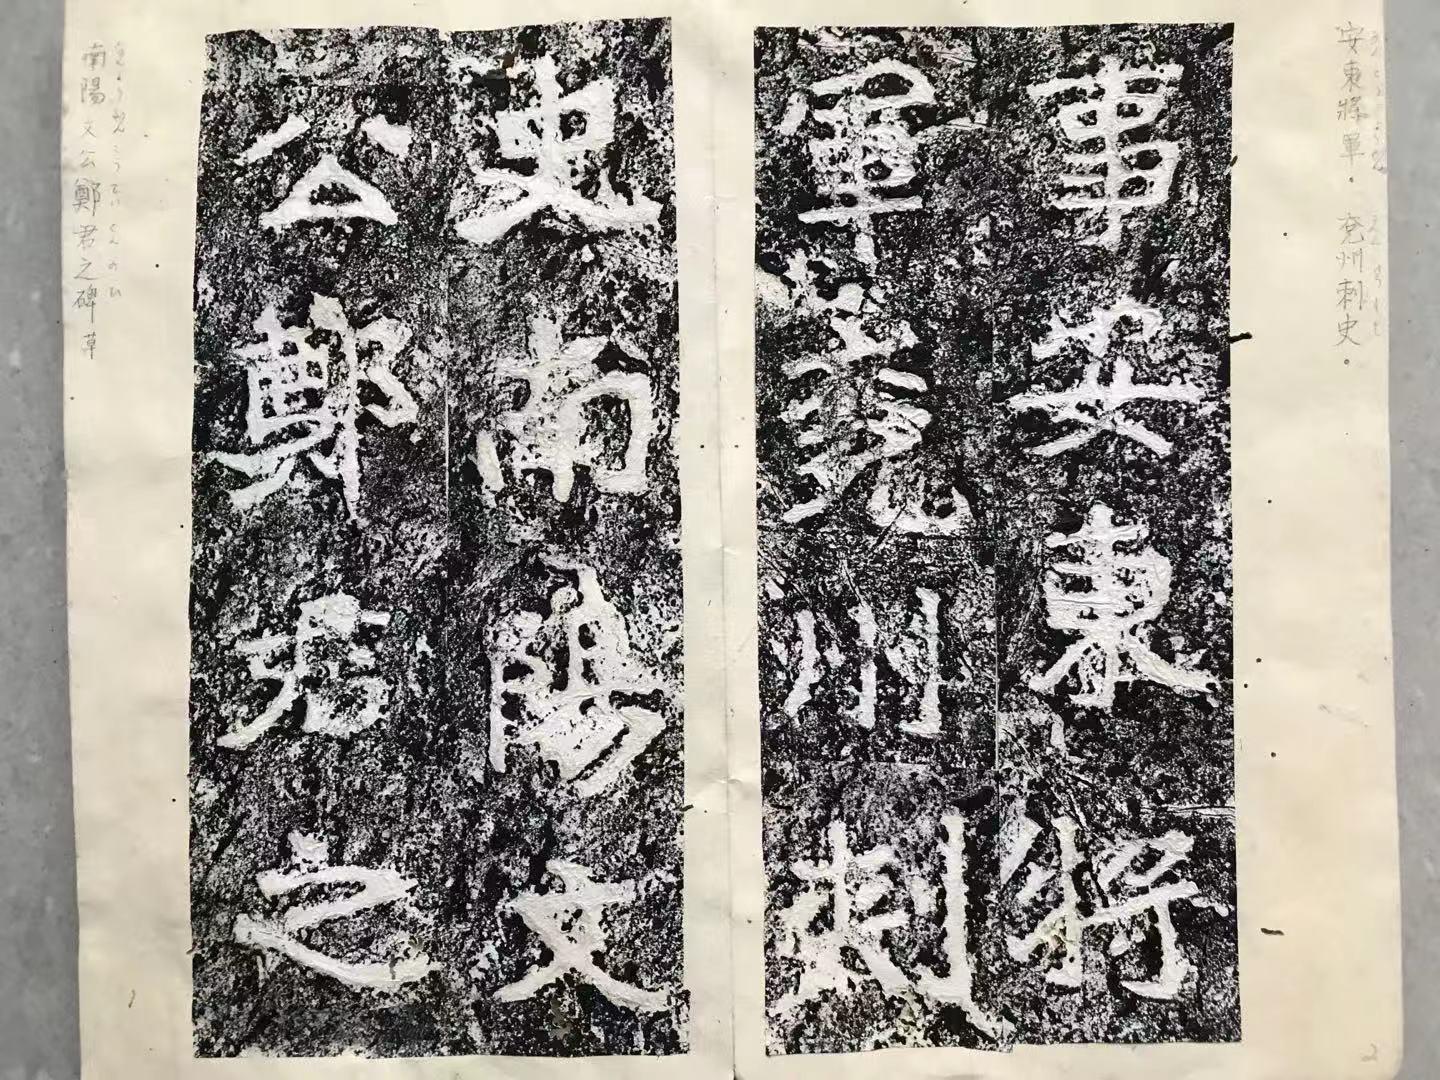 安東將軍。兗州刺史。
事安東將
軍兗州刺
史南陽文
公鄭君之
南陽文公鄭君之碑草